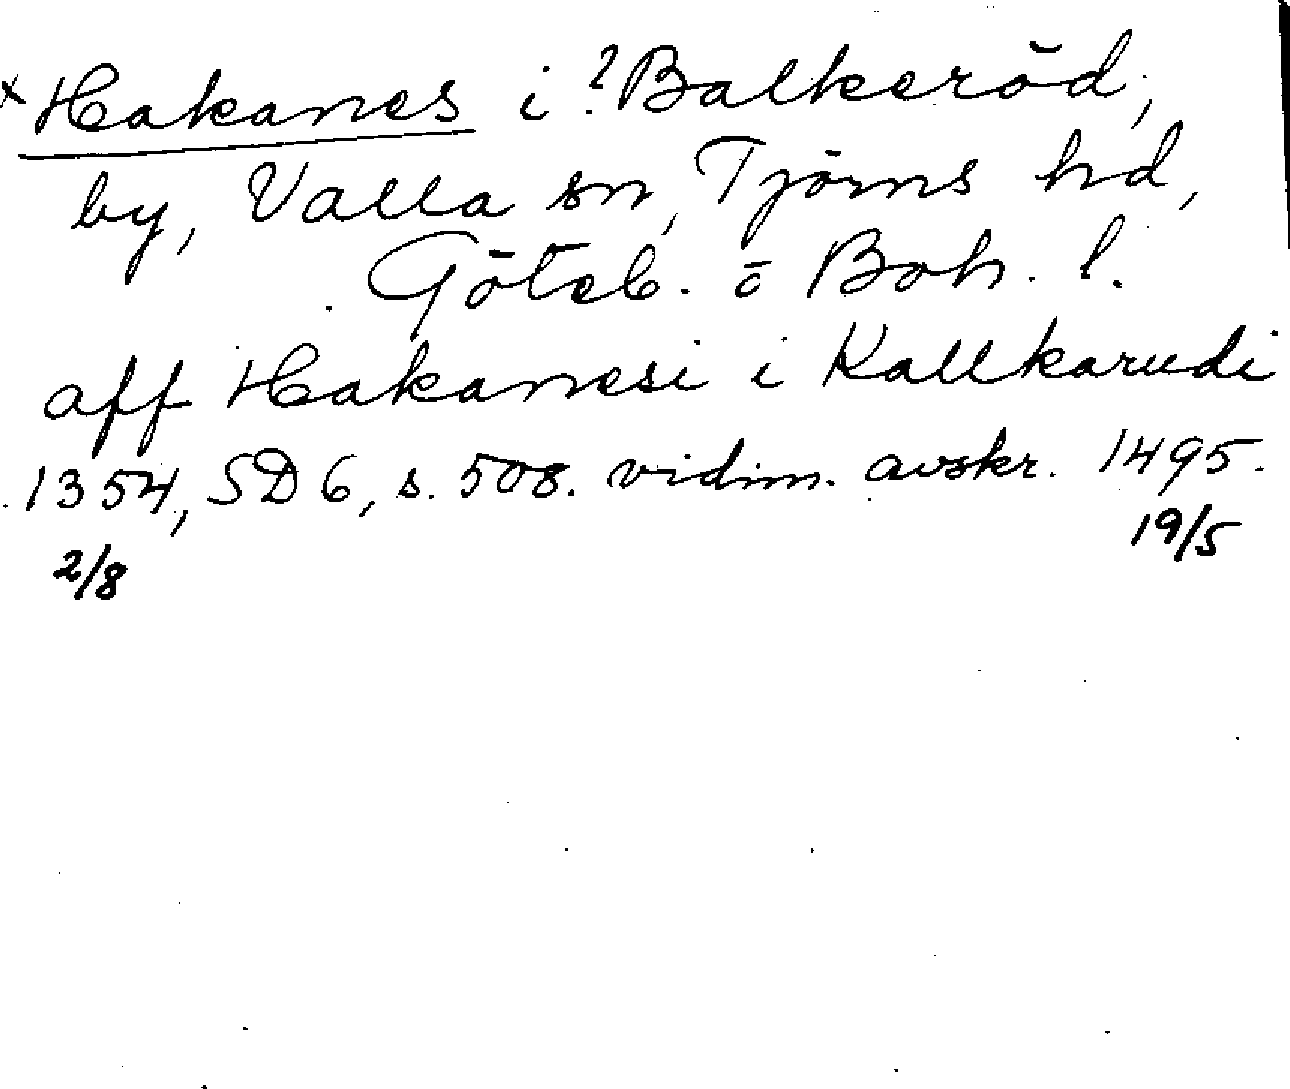 x Hakanes i ?Balkeröd,
by, Valla sn, Tjörns hd,
Göteb. o Boh. l.
aff Hakanesi i Kallkarudi
1354, SD 6, s. 508. vidim. avskr. 1495.
19/5
2/8